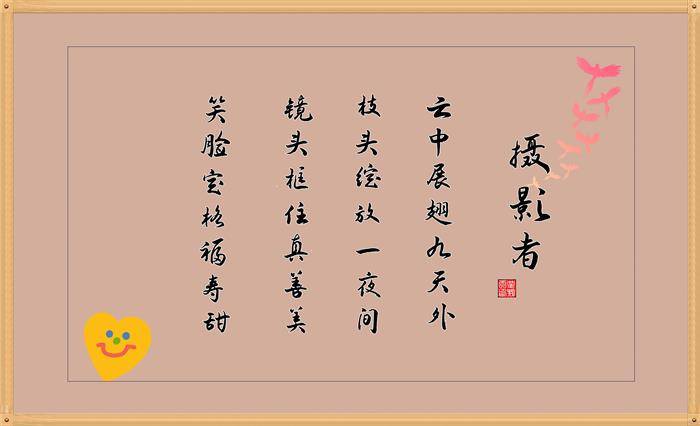 摄影者
云中展翅九天外
枝头绽放一夜间
镜头框住真善美
笑脸定格福寿甜